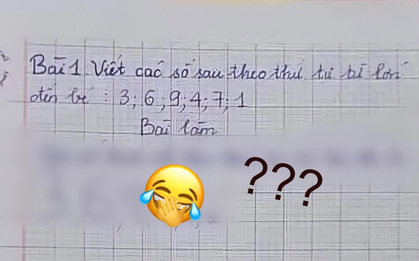 Bài 1 Viết các số sau theo thứ tự từ lớn
đến bé : 3; 6; 9; 4; 7; 1
Bài làm
???